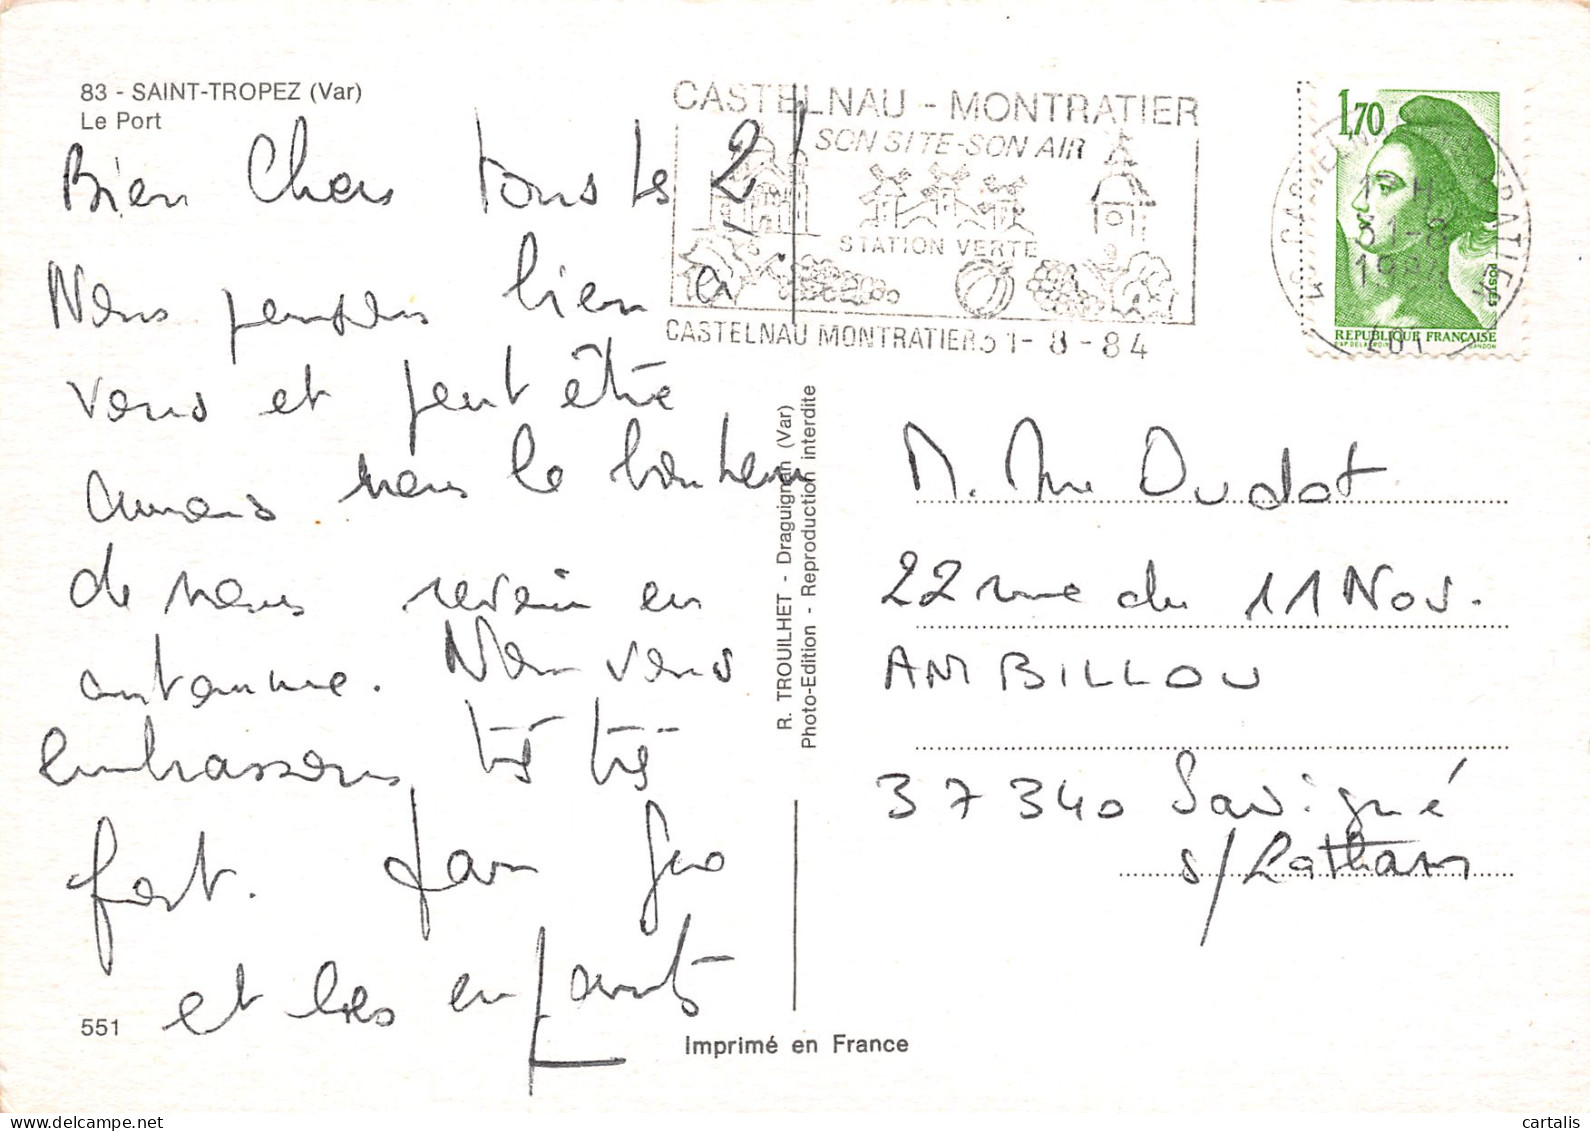 83 - SAINT-TROPEZ (Var)
Le Port
Bien Chers tous les 2!
Nous pensons bien à
vous et peut être
aurons nous le bonheur
de nous revoir en
automne. Nous vous
embrassons très très
fort. Jean
et les enfants
551
CASTELNAU - MONTRATIER
SON SITE-SON AIR
STATION VERTE
CASTELNAU MONTRATIER 31-8-84
1,70
31-8
1984
POSTES
REPUBLIQUE FRANÇAISE
R. TROUILHET - Draguignan (Var)
Photo-Edition - Reproduction interdite
M. Me Oudot
22 rue du 11 Nov.
AMBILLOU
37340 Savigné
s/Lathan
Imprimé en France
cartalis